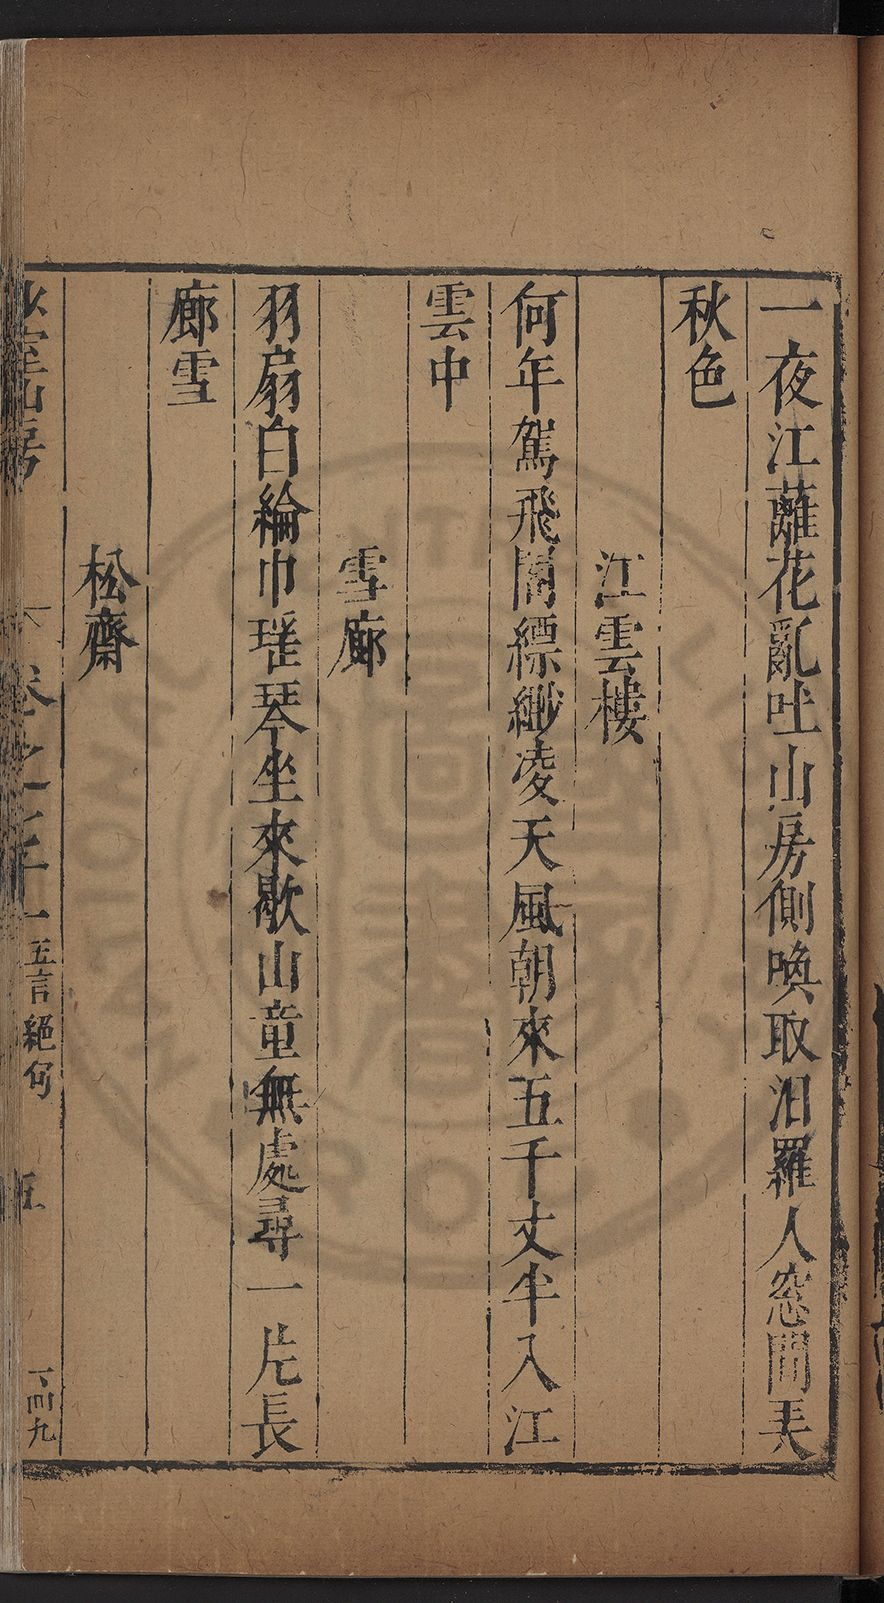 一夜江蘺花亂吐山房側喚取汨羅人窓間弄
秋色
江雲樓
何年駕飛閣縹緲凌天風朝來五千丈半入江
雲中
雪廊
羽扇白綸巾瑤琴坐來歇山童無處尋一片長
廊雪
松齋
山房 卷之 五言絕句 五